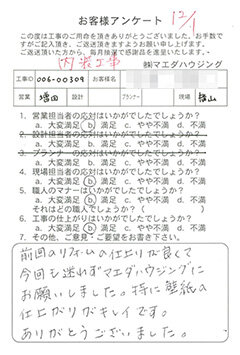 お客様アンケート 12/1
この度は工事のご用命を頂きありがとうございました。お手数で
すがご記入頂き、ご返送頂きますようお願い申し上げます。
ご返送頂いた方から、毎月抽選で感謝品を進呈いたします。
内装工事 ㈱マエダハウジング
工事ID 006-00309 お客様名
営業 増田 設計 プランナー 現場
1. 営業担当者の応対はいかがでしたでしょうか？
a. 大変満足 b. 満足 c. やや不満 d. 不満
2. 設計担当者の応対はいかがでしたでしょうか？
a. 大変満足 b. 満足 c. やや不満 d. 不満
3. プランナーの応対はいかがでしたでしょうか？
a. 大変満足 b. 満足 c. やや不満 d. 不満
4. 現場担当者の応対はいかがでしたでしょうか？
a. 大変満足 b. 満足 c. やや不満 d. 不満
5. 職人のマナーはいかがでしたでしょうか？
a. 大変満足 b. 満足 c. やや不満 d. 不満
それはどの職人でしょうか？（ ）
6. 工事の仕上がりはいかがでしたでしょうか？
a. 大変満足 b. 満足 c. やや不満 d. 不満
7. その他、ご意見・ご要望をお書き下さい。
前回のリフォームの仕上りが良くて
今回も迷わずマエダハウジングに
お願いしました。特に壁紙の
仕上がりがキレイです。
ありがとうございました。